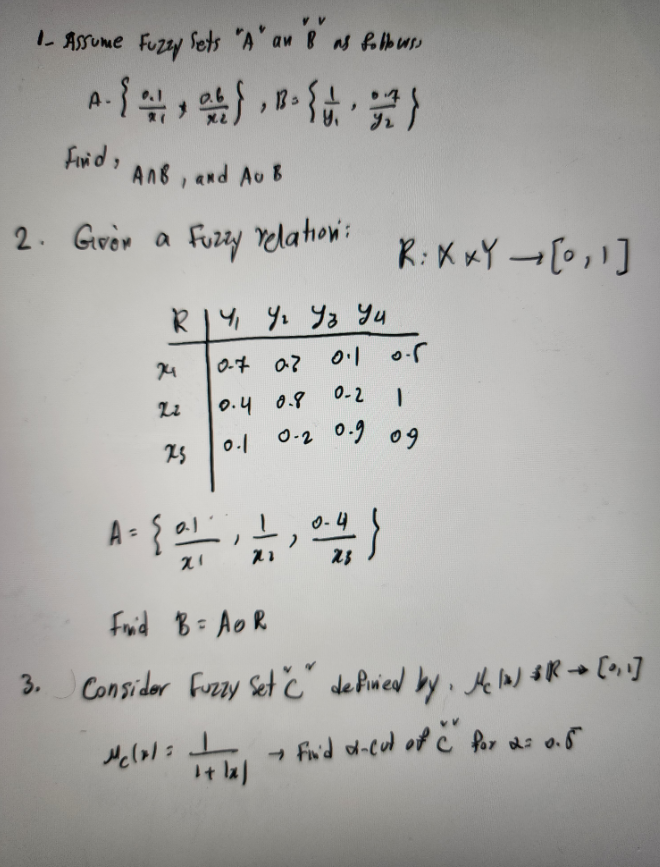 1- Assume Fuzzy Sets "A" an "B" as follows
A = { 0.1/x1 , 0.6/x2 } , B = { 1/y1 , 0.7/y2 }
Find, A∩B , and A∪B
2. Given a Fuzzy relation: R: X x Y → [0,1]
R | y1 y2 y3 y4
x1 0.7 0.1 0.5
x2 0.4 0.8 0.2 1
x3 0.1 0.2 0.9 0.9
A = { 0.1/x1 , 1/x2 , 0.4/x3 }
Find B = A∘R
3. Consider Fuzzy Set "C" defined by, Mc(x) : R → [0,1]
Mc(x) = 1/(1+|x|) → Find α-cut of "C" for α = 0.5